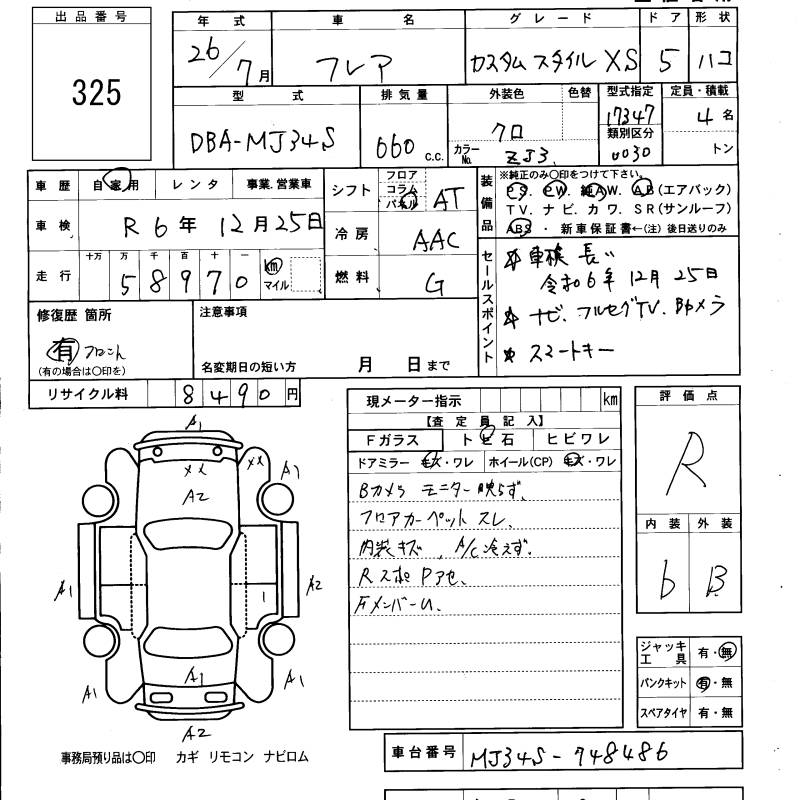 出品番号
325
年式 車名 グレード ドア 形状
26/7月 フレア カスタム スタイル XS 5 ハコ
型式 排気量 外装色 色替 型式指定 定員・積載
DBA-MJ34S 660 c.c. クロ 17347 4名
カラーNo. ZJ3 類別区分 0030 トン
車歴 自家用 レンタ 事業.営業車
車検 R6年12月25日
走行 十万 万 千 百 十 一
58970 km マイル
シフト フロア コラム パネル AT
冷房 AAC
燃料 G
装備品 ※純正のみ〇印をつけて下さい。
P S. P W. 純A W. A B(エアバック)
T V. ナ ビ. カ ワ. S R(サンルーフ)
ABS ・ 新車保証書←(注)後日送りのみ
セールスポイント
☆ 車検 長い
令和6年 12月 25日
★ ナビ. フルセグTV. Bカメラ
★ スマートキー
修復歴 箇所
有 フロこん
(有の場合は〇印を)
注意事項
名変期日の短い方 月 日まで
リサイクル料 8490円
現メーター指示 km
【査定員記入】
Fガラス トビ石 ヒビワレ
ドアミラー キズ・ワレ ホイール(CP) キズ・ワレ
Bカメラ モニター映らず.
フロアカーペット スレ.
内装キズ, A/C冷えず.
Rスポ Pアセ.
FメンバーU.
評価点
R
内装 外装
b B
A1
XX XX A1
A2
A1 A2
1
A1 A1 A1
A2
ジャッキ工具 有・無
パンクキット 有・無
スペアタイヤ 有・無
事務局預り品は〇印 カギ リモコン ナビロム
車台番号 MJ34S-748486